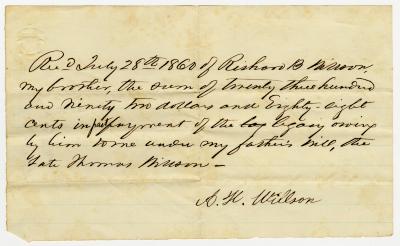 Rec'd July 28th 1860 of Richard B Willson,
my brother, the sum of twenty three hundred
and Ninety two dollars and Eighty eight
cents in part payment of the legacy owing
by him to me under my father's will, the
late Thomas Willson -
A. H. Willson